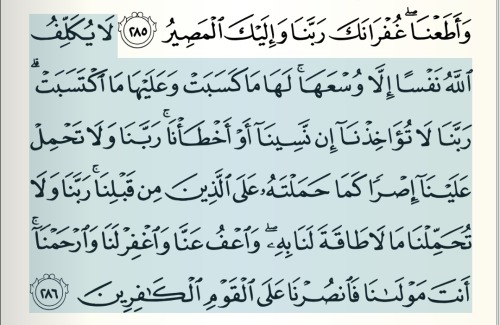 وَأَطَعْنَاۖ غُفْرَانَكَ رَبَّنَا وَإِلَيْكَ ٱلْمَصِيرُ ٢٨٥ لَا يُكَلِّفُ
ٱللَّهُ نَفْسًا إِلَّا وُسْعَهَاۚ لَهَا مَا كَسَبَتْ وَعَلَيْهَا مَا ٱكْتَسَبَتْۗ
رَبَّنَا لَا تُؤَاخِذْنَآ إِن نَّسِينَآ أَوْ أَخْطَأْنَاۚ رَبَّنَا وَلَا تَحْمِلْ
عَلَيْنَآ إِصْرًا كَمَا حَمَلْتَهُۥ عَلَى ٱلَّذِينَ مِن قَبْلِنَاۚ رَبَّنَا وَلَا
تُحَمِّلْنَا مَا لَا طَاقَةَ لَنَا بِهِۦۖ وَٱعْفُ عَنَّا وَٱغْفِرْ لَنَا وَٱرْحَمْنَآۚ
أَنتَ مَوْلَىٰنَا فَٱنصُرْنَا عَلَى ٱلْقَوْمِ ٱلْكَٰفِرِينَ ٢٨٦